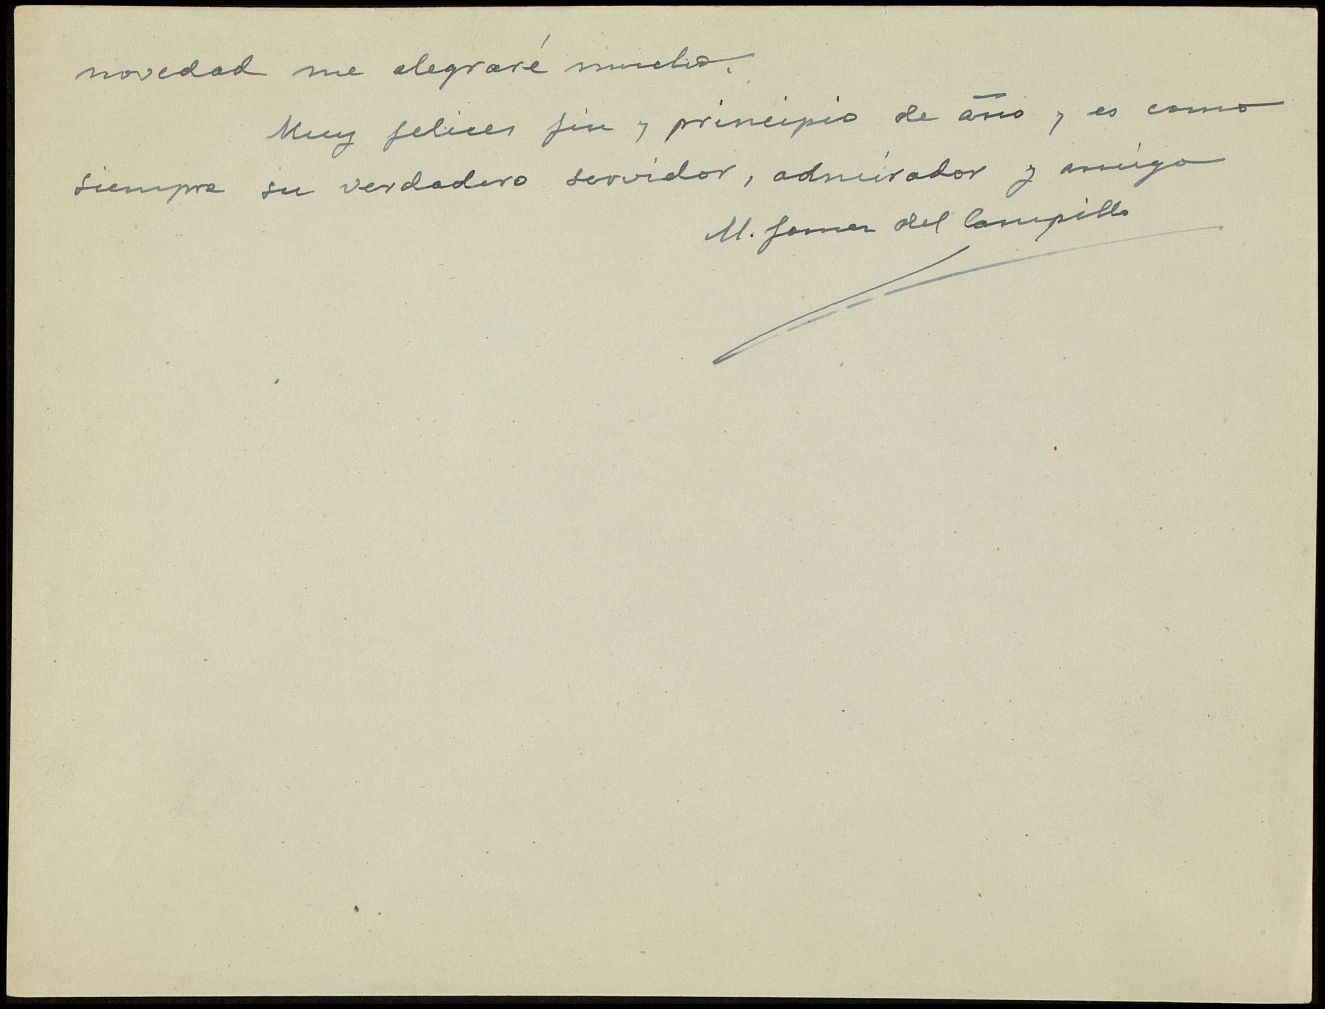 novedad me alegraré mucho.
Muy felices fin y principio de año y es como
siempre su verdadero servidor, admirador y amigo
M. Gomez del Campillo